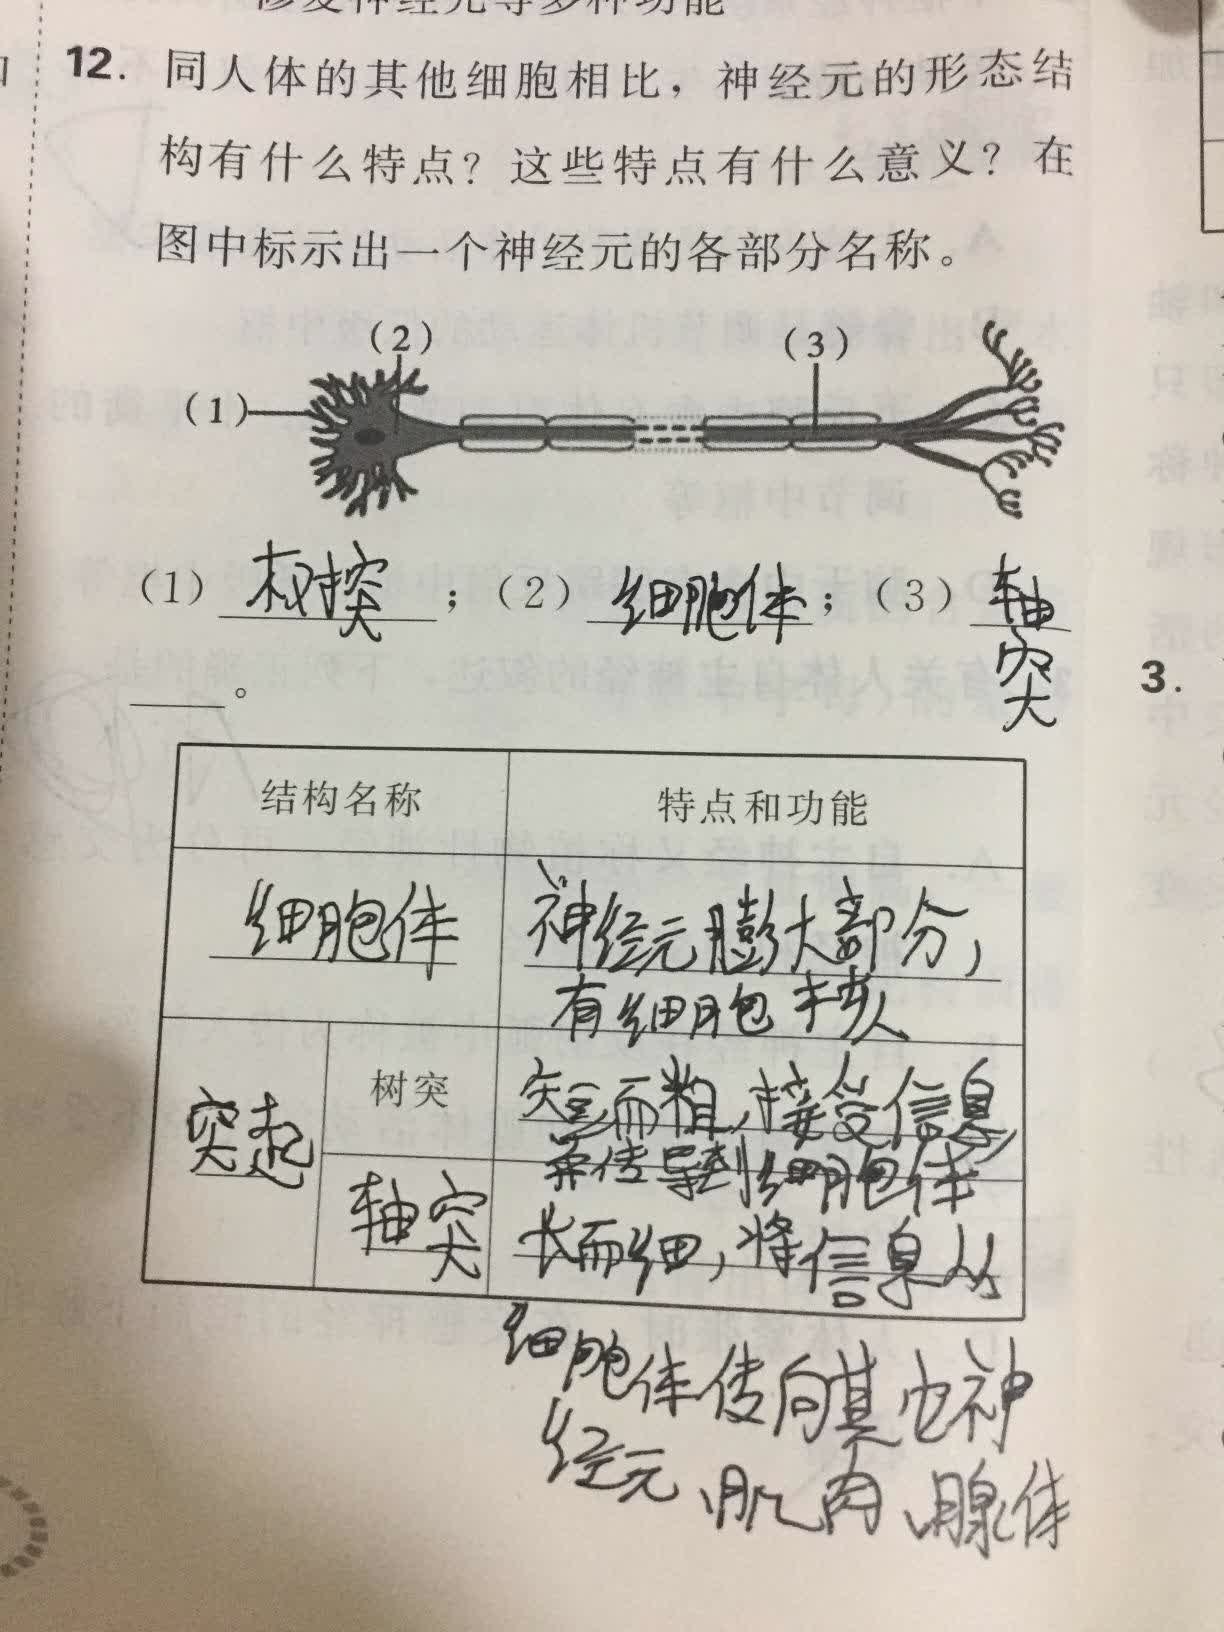 修复神经元等多种功能
12. 同人体的其他细胞相比，神经元的形态结
构有什么特点？这些特点有什么意义？在
图中标示出一个神经元的各部分名称。
(2)
(3)
(1)
(1) 树突 ；(2) 细胞体 ；(3) 轴
突
。
3.
结构名称 特点和功能
细胞体 神经元膨大部分，
有细胞核
突起 树突 短而粗，接受信息
并传导到细胞体
轴突 长而细，将信息从
细胞体传向其他神
经元、肌肉、腺体